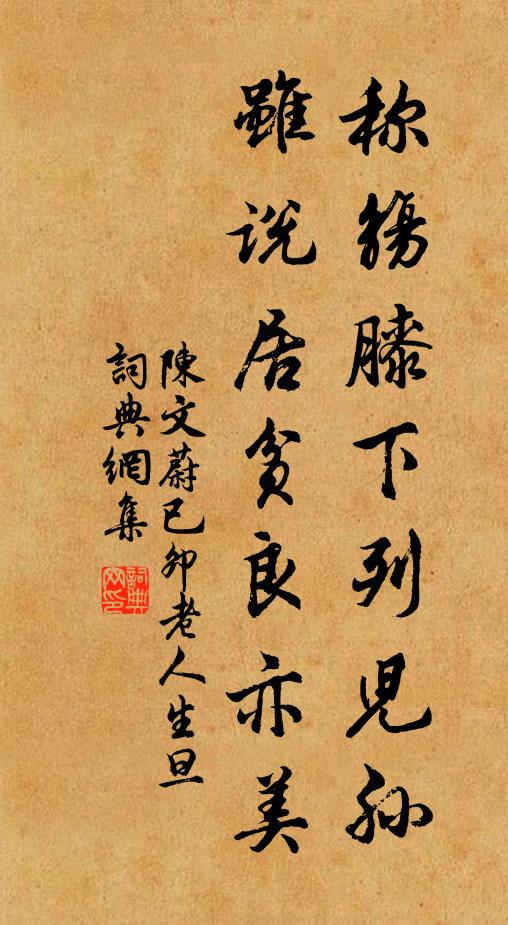 称觴膝下列兒孙
雖説居貧良亦美
陳文蔚已卯老人生旦
詞典網集
詞典网印